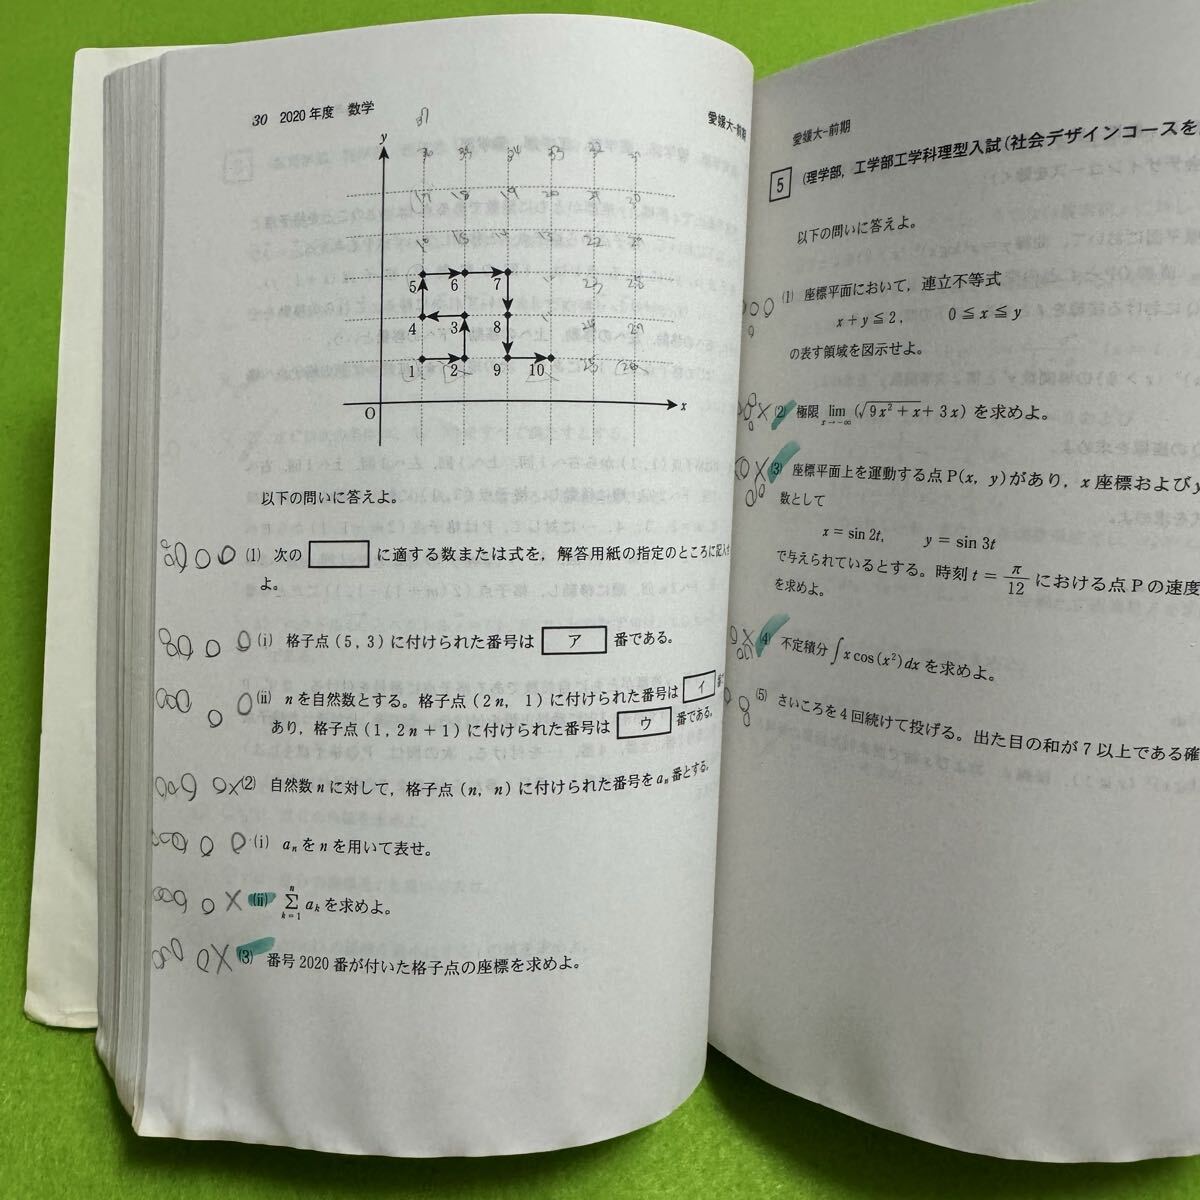 30 2020年度 数学
愛媛大-前期
y
37
36 35 34 33 32 31
17 18 19 20 21 30
16 15 14 13 22 29
5 6 7 23 28
4 3 8 24 27
1 2 9 10 25 26
O x
以下の問いに答えよ。
(1) 次の に適する数または式を，解答用紙の指定のところに記入せ
よ。
(i) 格子点(5, 3)に付けられた番号は ア 番である。
(ii) nを自然数とする。格子点(2n, 1)に付けられた番号は イ
あり，格子点(1, 2n+1)に付けられた番号は ウ 番である。
(2) 自然数nに対して，格子点(n, n)に付けられた番号をaₙ番とする。
(i) aₙをnを用いて表せ。
(ii) Σ k=1 n aₖを求めよ。
(3) 番号2020番が付いた格子点の座標を求めよ。
愛媛大-前期
5 (理学部，工学部工学科理型入試(社会デザインコースを
以下の問いに答えよ。
(1) 座標平面において，連立不等式
x+y≦2, 0≦x≦y
の表す領域を図示せよ。
(2) 極限 lim x→-∞ (√9x²+x+3x)を求めよ。
(3) 座標平面上を運動する点P(x, y)があり，x座標およびy
数として
x=sin2t, y=sin3t
で与えられているとする。時刻t=π/12における点Pの速度
を求めよ。
(4) 不定積分∫xcos(x²)dxを求めよ。
(5) さいころを4回続けて投げる。出た目の和が7以上である確